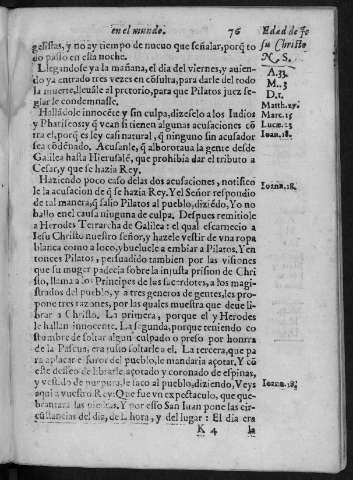 en el mundo. 76
Edad de Je
su Christo
N. S.
gelistas, y no ay tiempo de nueuo que señalar, porq̃ to
do passo en esta noche.
Llegandose ya la mañana, el dia del viernes, y auien-
do ya entrado tres vezes en cõsulta, para darle del todo
la muerte, lleuãle al pretorio, para que Pilatos juez se-
glar le condenasse.
A. 33.
M. 3
D. 1.
Matth. 27.
Marc. 15
Lucæ. 23
Ioan. 18.
Hallãdole innocẽte y sin culpa, dizeselo a los Iudios
y Phariseos; q̃ vean si tienen algunas acusaciones cõ
tra el, porq̃ es ley casi natural, q̃ ninguno sin acusador
sea cõdenado. Acusanle, q̃ alborotaua la gente desde
Galilea hasta Hierusalẽ, que prohibia dar el tributo a
Cesar, y que se hazia Rey.
Haziendo poco caso delas dos acusaciones, notifico
le la acusacion de q̃ se hazia Rey. Y el Señor respondio
de tal manera, q̃ salio Pilatos al pueblo, diziẽdo, Yo no
hallo en el causa ninguna de culpa. Despues remitiole
a Herodes Tetrarcha de Galilea: el qual escarnecio a
Iesu Christo nuestro señor, y hazele vestir de vna ropa
blanca como a loco, y bueluele a embiar a Pilatos. Y en
tonces Pilatos, persuadido tambien por las visiones
que su muger padecia sobre la injusta prision de Chri
sto, llama a los Principes de los sacerdotes, a los magi-
strados del pueblo, y a tres generos de gentes, les pro-
pone tres razones, por las quales muestra que deue li-
brar a Christo. La primera, porque el y Herodes
le hallan innocente. La segunda, porque teniendo co
stumbre de soltar algun culpado o preso por honrra
de la Pascua, era justo soltarle a el. La tercera, que pa
ra aplacar el furor del pueblo, le mandaria açotar. Y cõ
este desseo de librarle, açotado y coronado de espinas,
y vestido de purpura, le saco al pueblo, diziendo, Veys
aqui a vuestro Rey: Que fue vn expectaculo, que que-
brantara las piedras. Y por esso San Iuan pone las cir-
cũstancias del dia, de la hora, y del lugar: El dia era
Ioann. 18.
Ioann. 18.
K 4 la